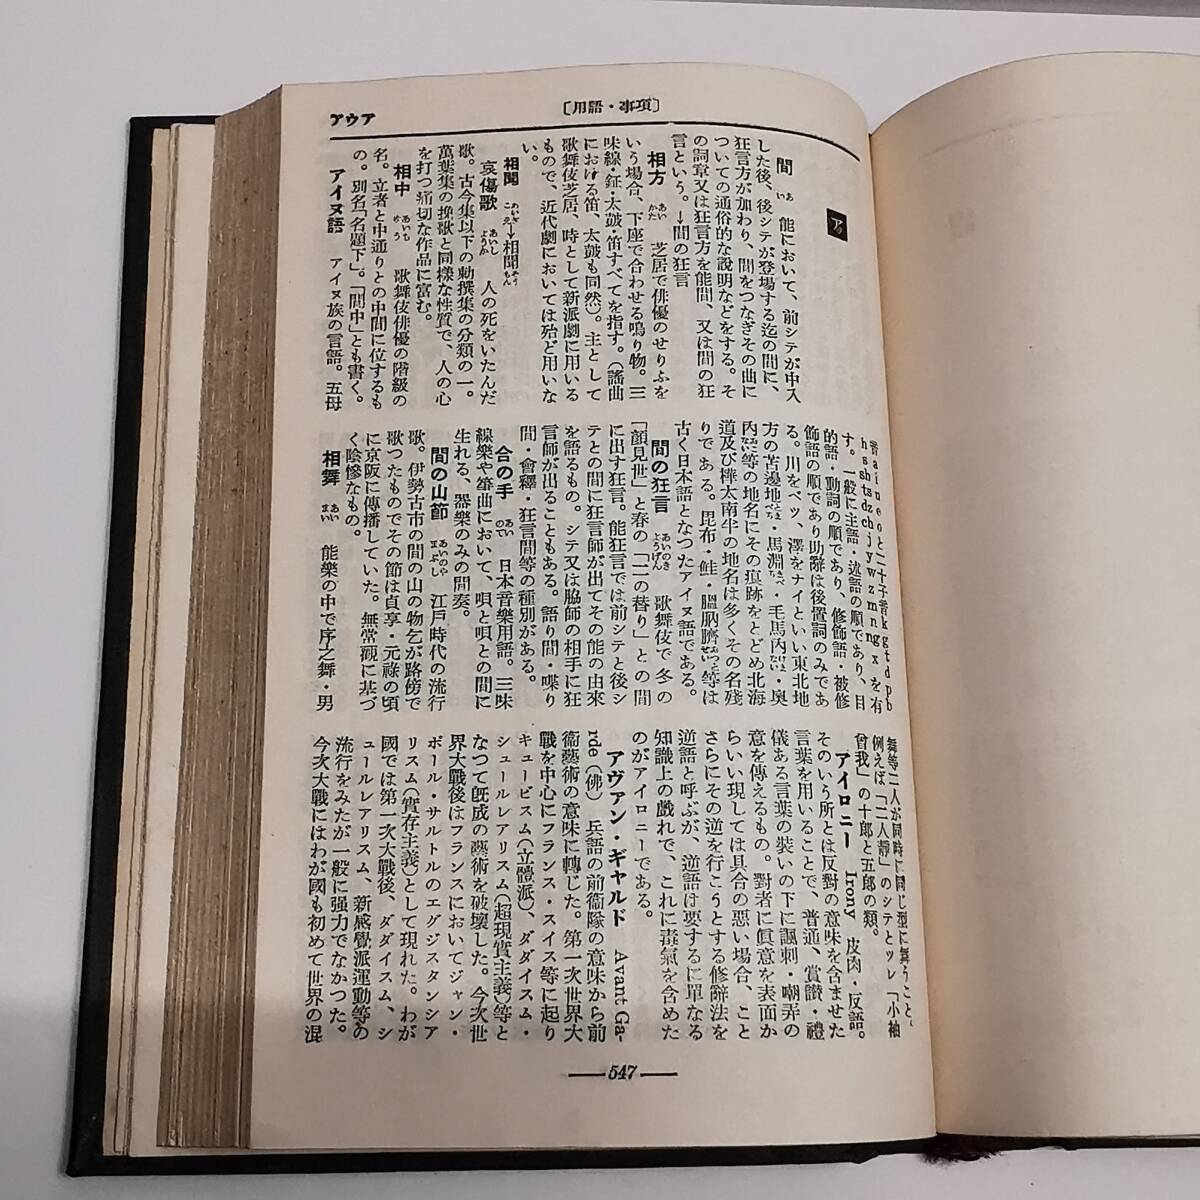 アウア
〔用語・事項〕
ア
間 あい 能において、前シテが中入
した後、後シテが登場する迄の間に、
狂言方が加わり、間をつなぎその曲に
ついての通俗的な説明などをする。そ
の詞章又は狂言方を能間、又は間の狂
言という。→間の狂言
相方 あいかた 芝居で俳優のせりふを
いう場合、下座で合わせる鳴り物。三
味線・鉦・太鼓・笛すべてを指す。(謠曲
における笛、太鼓も同然)。主として
歌舞伎芝居、時として新派劇に用いる
もので、近代劇においては殆ど用いな
い。
相聞 あいぎこえ→相聞そうもん
哀傷歌 あいしようか 人の死をいたんだ
歌。古今集以下の勅撰集の分類の一。
萬葉集の挽歌と同様な性質で、人の心
を打つ痛切な作品に富む。
相中 あいちゆう 歌舞伎俳優の階級の
名。立者と中通りとの中間に位するも
の。別名「名題下」。「間中」とも書く。
アイヌ語 アイヌ族の言語。五母
音 a i u e o と二十子音 k g t d p b
h s sh ts dz ch j y w z m n ng x を有
す。一般に主語・述語の順であり、目
的語・動詞の順であり、修飾語・被修
飾語の順であり助辭は後置詞のみであ
る。川をベツ、澤をナイといい東北地
方の苫邊地・馬淵・毛馬内・奥
内等の地名にその痕跡をとどめ北海
道及び樺太南半の地名は多くその名残
りである。昆布・鮭・膃肭臍等は
古く日本語となつたアイヌ語である。
間の狂言 あいのきようげん 歌舞伎で冬の
「顔見世」と春の「二の替り」との間
に出す狂言。能狂言では前シテと後シ
テとの間に狂言師が出てその能の由來
を語るもの。シテ又は脇師の相手に狂
言師が出ることもある。語り間・喋り
間・會釋・狂言間等の種別がある。
合の手 あいのて 日本音樂用語。三味
線樂や箏曲において、唄と唄との間に
生れる、器樂のみの間奏。
間の山節 あいのやまぶし 江戸時代の流行
歌。伊勢古市の間の山の物乞が路傍で
歌つたものでその節は貞享・元祿の頃
に京阪に傳播していた。無常觀に基づ
く陰慘なもの。
相舞 あいまい 能樂の中で序之舞・男
舞等二人が同時に同じ型に舞うこと、
例えば「二人靜」のシテとツレ「小袖
曾我」の十郎と五郎の類。
アイロニー Irony 皮肉・反語。
そのいう所とは反對の意味を含ませた
言葉を用いることで、普通、賞讃・禮
儀ある言葉の裝いの下に諷刺・嘲弄の
意を傳えるもの。對者に眞意を表面か
らいい現しては具合の惡い場合、こと
さらにその逆を行こうとする修辭法を
逆語と呼ぶが、逆語は要するに單なる
知識上の戲れで、これに毒氣を含めた
のがアイロニーである。
アヴァン・ギャルド Avant Ga-
rde(佛) 兵語の前衞隊の意味から前
衞藝術の意味に轉じた。第一次世界大
戰を中心にフランス・スイス等に起り
キュービスム(立體派)、ダダイスム・
シュールレアリスム(超現實主義)等と
なつて既成の藝術を破壞した。今次世
界大戰後はフランスにおいてジャン・
ポール・サルトルのエグジスタンシア
リスム(實存主義)として現れた。わが
國では第一次大戰後、ダダイスム、シ
ュールレアリスム、新感覺派運動等の
流行をみたが一般に强力でなかつた。
今次大戰にはわが國も初めて世界の混
547